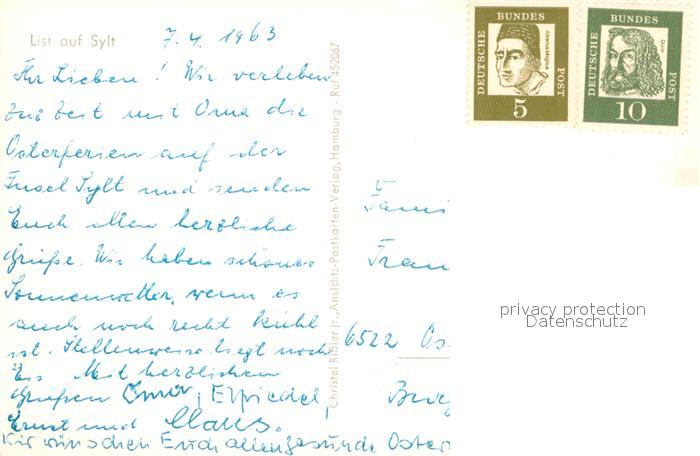 List auf Sylt
7.4.1963
Ihr Lieben! Wir verleben
zur Zeit mit Oma die
Osterferien auf der
Insel Sylt und senden
Euch allen herzliche
Grüße. Wir haben schönes
Sonnenwetter, wenn es
auch noch recht kühl
ist. Stellenweise liegt noch
Eis. Mit herzlichen
Grüßen Omi,
Ernst und Claus.
Wir wünschen Euch allen gesunde Oster
Christel Rißler jr., Ansichts-Postkarten-Verlag, Hamburg - Ruf 452067
DEUTSCHE BUNDES POST
Albertus Magnus
5
DEUTSCHE BUNDES POST
Dürer
10
Fami
Fran
6522 Os
Burg
privacy protection
Datenschutz